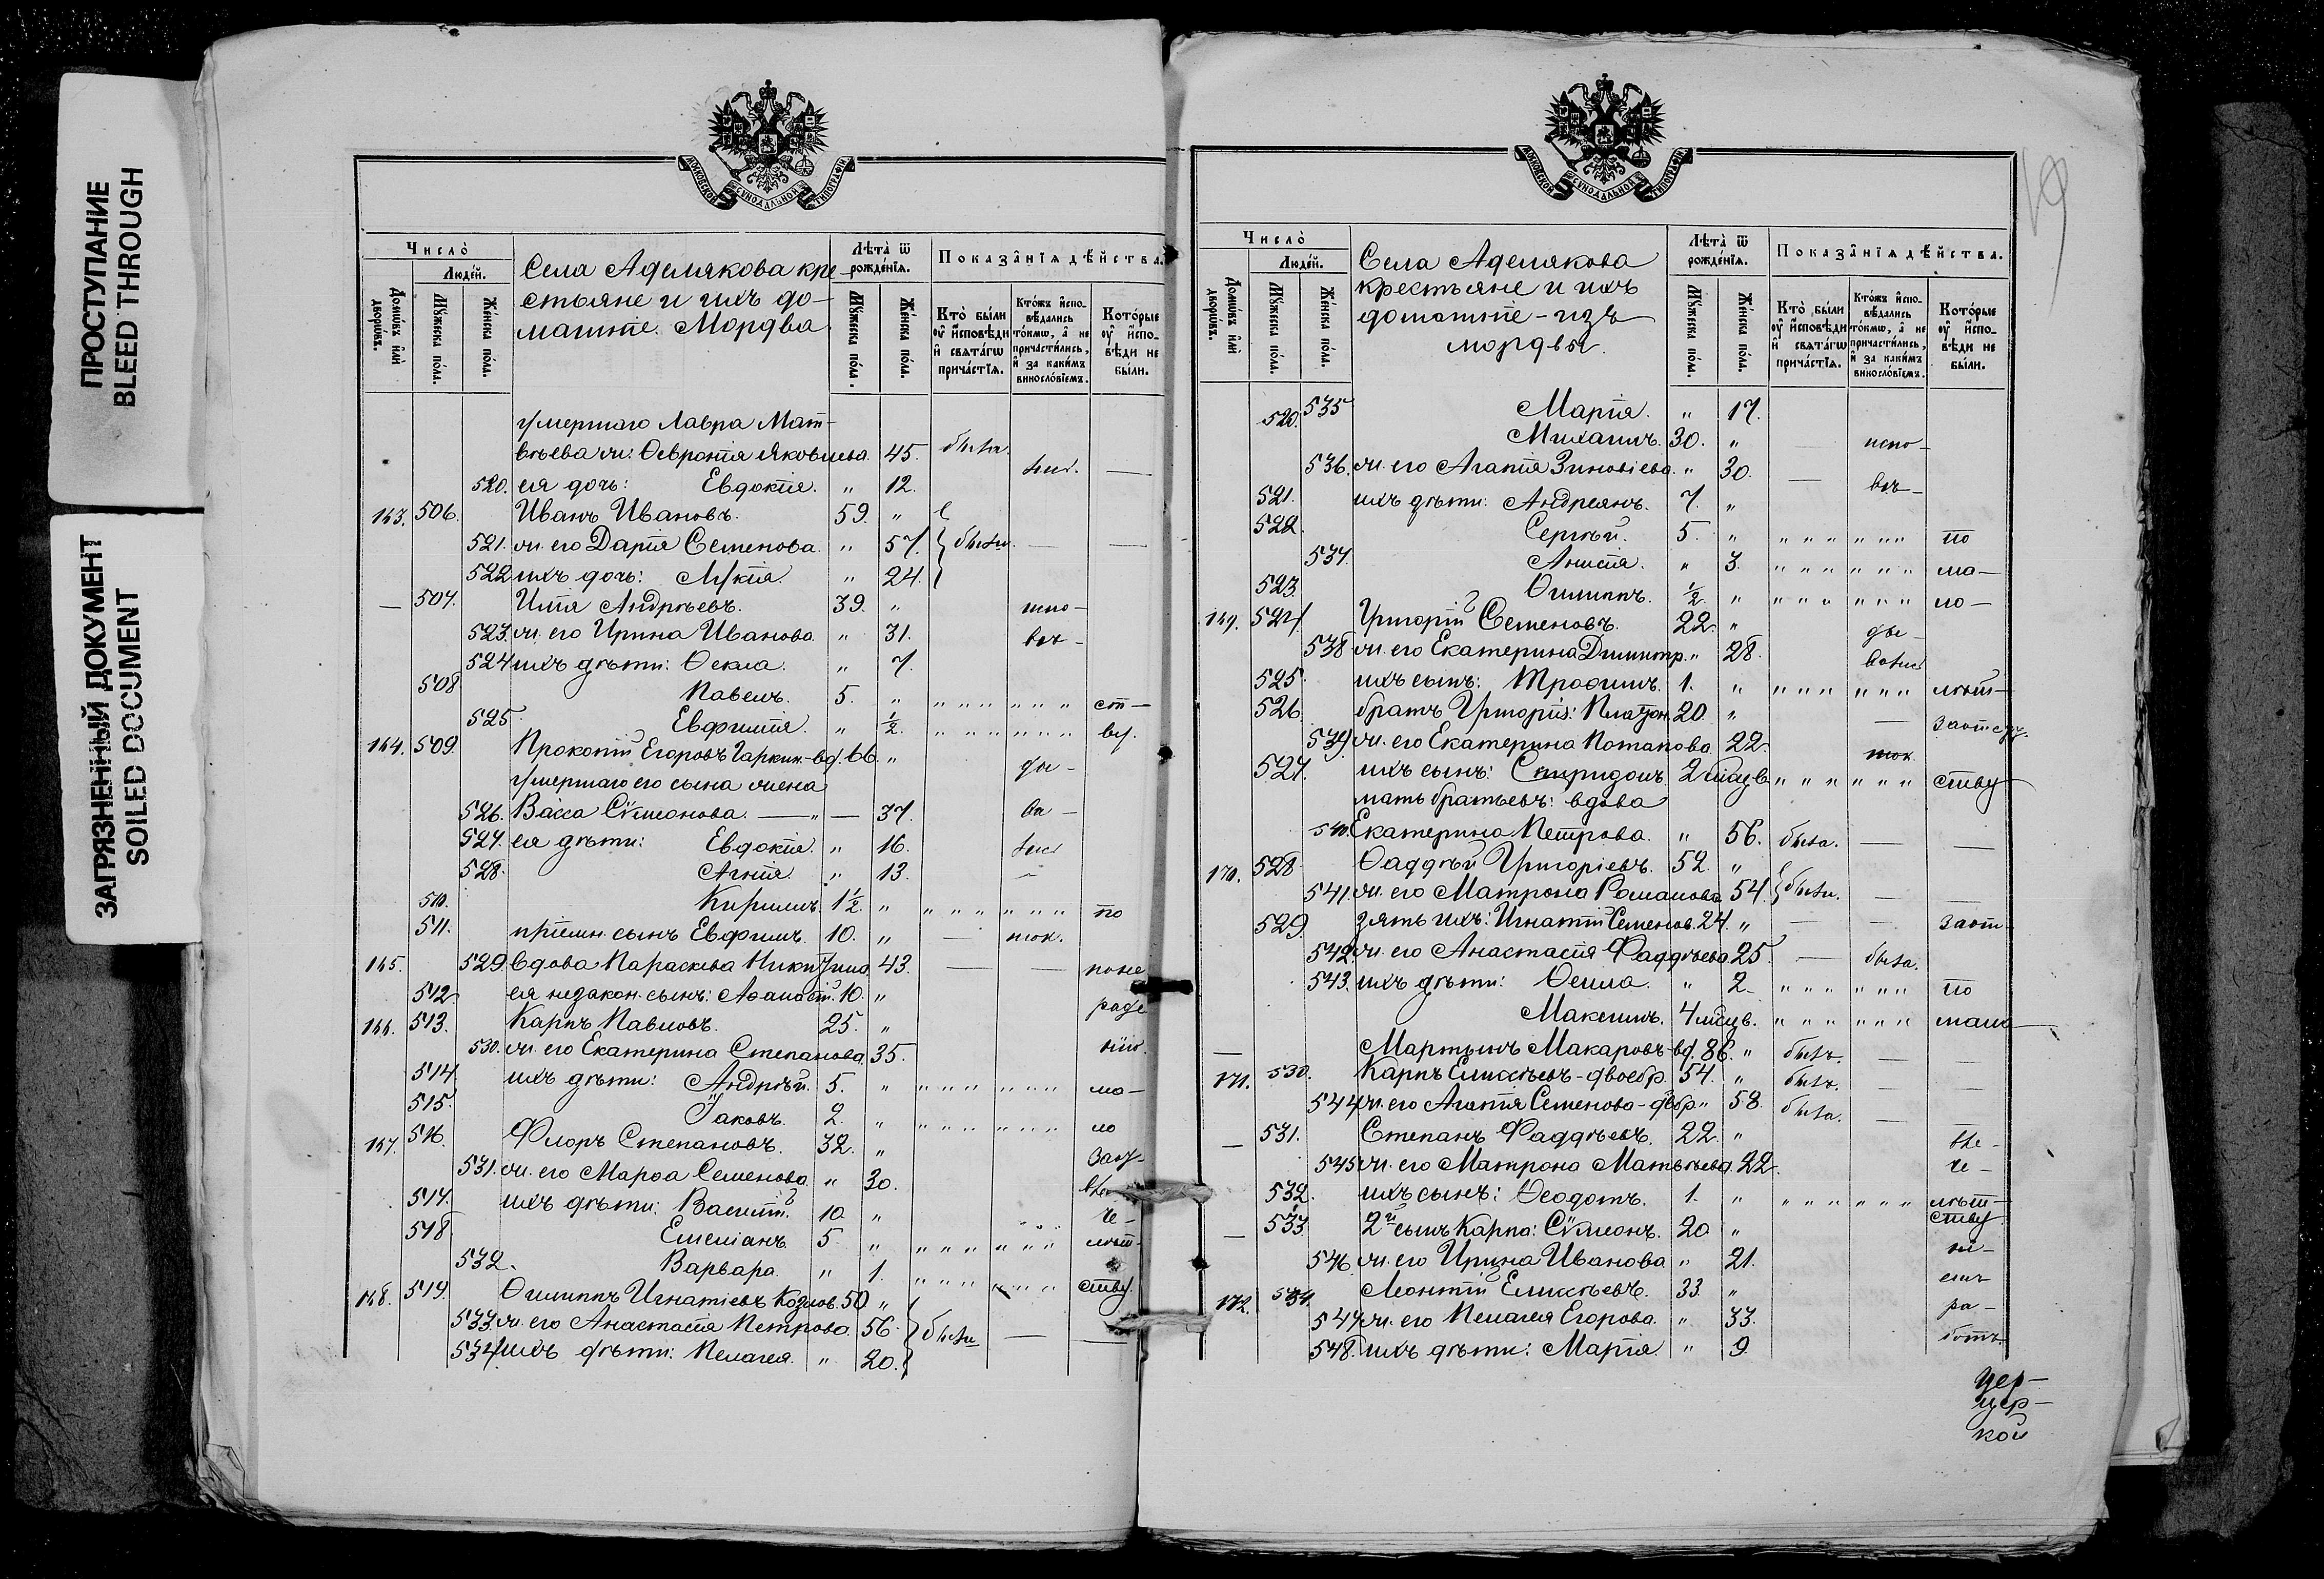 ПРОСТУПАНИЕ
BLEED THROUGH
ЗАГРЯЗНЕННЫЙ ДОКУМЕНТ
SOILED DOCUMENT
МОСКОВСКОЙ СѴНОДАЛЬНОЙ ТИПОГРАФІИ
Число̀
Люде́й.
Домѡ́въ и҆лѝ дворѡ́въ.
Мꙋ́жеска по́ла.
Же́нска по́ла.
Села Аделякова кре-
стьяне и ихъ до-
машніе. Мордва
Лѣ́та ѿ рожде́нїѧ.
Мꙋ́жеска по́ла.
Же́нска по́ла.
Показа̑нїѧ дѣ́йства.
Кто̀ бы́ли оу҆ и҆сповѣ́ди и҆ свѧта́гѡ прича́стїѧ.
Кто́жъ и҆спо-вѣ́дались то́кмѡ, а҆ не причасти́лись, и҆ за каки́мъ винослові́емъ.
Кото́рые оу҆ и҆спо-вѣ́ди не бы́ли.
умершаго Лавра Мат-
вѣева ж: Ѳевронія Яковлева. 45. была.
520. ея дочь: Евдокія. " 12.
163. 506. Иванъ Ивановъ. 59. "
521. ж. его Дарія Семенова. " 57. были. — —
522 ихъ дочь: Лукія. " 24.
— 507. Илія Андреевъ. 39. " испо-
523. ж. его Ирина Иванова " 31. вѣ-
524 ихъ дѣти: Ѳекла. " 7.
508 Павелъ. 5. " " " " " " " ст-
525. Евфимія. " ½. " " " " " " ву.
164. 509. Прокопій Егоровъ Гаркин-вд. 66. "
умершаго его сына жена
526. Васса Сѷмеонова. — " — 37. ва-
527. ея дѣти: Евдокія. " 16.
528. Агнія. " 13.
510. Кириллъ. 1½. " " " " " " " по
511. пріемн. сынъ Евфимъ. 10. " — ток.
165. 529. вдова Параскева Никитина 43. — — по не
512 ея незакон. сынъ: Аѳанасій. 10. " раде
166. 513. Карпъ Павловъ. 25. "
530. ж. его Екатерина Степанова 35. нію.
514 ихъ дѣти: Андрей. 5. " " " " " " " ма-
515. Іаковъ. 2. " " " " " " " ло
167. 516. Флоръ Степановъ. 32. "
531. ж. его Марѳа Семенова " 30.
517. ихъ дѣти: Василій. 10 "
518 Емеліанъ. 5. " " " " " " " лѣт-
532. Варвара. " 1. " " " " " " ству.
168. 519. Ѳилиппъ Игнатіевъ Козлов. 50 "
533 ж. его Анастасія Петрова. 56. были — —
534 ихъ дѣти: Пелагея. " 20.
19
МОСКОВСКОЙ СѴНОДАЛЬНОЙ ТИПОГРАФІИ
Число̀
Люде́й.
Домѡ́въ и҆лѝ дворѡ́въ.
Мꙋ́жеска по́ла.
Же́нска по́ла.
Села Аделякова
крестьяне и ихъ
домашніе - изъ
мордвы.
Лѣ́та ѿ рожде́нїѧ.
Мꙋ́жеска по́ла.
Же́нска по́ла.
Показа̑нїѧ дѣ́йства.
Кто̀ бы́ли оу҆ и҆сповѣ́ди и҆ свѧта́гѡ прича́стїѧ.
Кто́жъ и҆спо-вѣ́дались то́кмѡ, а҆ не причасти́лись, и҆ за каки́мъ винослові́емъ.
Кото́рые оу҆ и҆спо-вѣ́ди не бы́ли.
535 Марія. " 17.
520. Михаилъ. 30. " — испо-
536. ж. его Агапія Зиновіева. " 30. — вѣ-
521. ихъ дѣти: Андреянъ. 7. "
522. Сергѣй. 5. " " " " " " " по
537. Анисія. " 3. " " " " " " ма-
523. Ѳилиппъ. ½. " " " " " " " ло-
169. 524 Григорій Семеновъ. 22. "
538 ж. его Екатерина Димитр. " 28.
525. ихъ сынъ: Трофимъ. 1. " " " " " " " лѣт-
526. братъ Григорія: Платон. 20. " — за отсут.
539. ж. его Екатерина Потапова. 22. ток
527. ихъ сынъ: Спиридонъ. 2 мѣсяцев. " " " " " " ству
мать братьевъ: вдова
540. Екатерина Петрова. " 56. была. — —
170. 528 Ѳаддѣй Григоріевъ. 52. "
541. ж. его Матрона Романова 54. были. —
529. зять ихъ: Игнатій Семенов. 24. " — — за от-
542. ж. его Анастасія Фаддѣева 25. — была.
543. ихъ дѣти: Ѳекла. " 2. " " " " " " по
Максимъ. 4 мѣсяцев. " " " " " " мало
— Мартынъ Макаровъ-вд. 86. " былъ. — —
171. 530. Карпъ Елисѣевъ - двоебр. 54. " былъ. — —
544 ж. его Агапія Семенова - двбр " 58. была. — —
— 531. Степанъ Фаддѣевъ. 22. "
545 ж. его Матрона Матвѣева. 22.
532. ихъ сынъ: Ѳеодотъ. 1. " " " " " " " лѣт-
ству
— 533. 2й сынъ Карпа: Сѷмеонъ. 20 "
546 ж. его Ирина Иванова " 21.
172. 534 Леонтій Елисѣевъ. 33. "
547 ж. его Пелагея Егорова. " 33. ра-
548. ихъ дѣти: Марія. " 9.